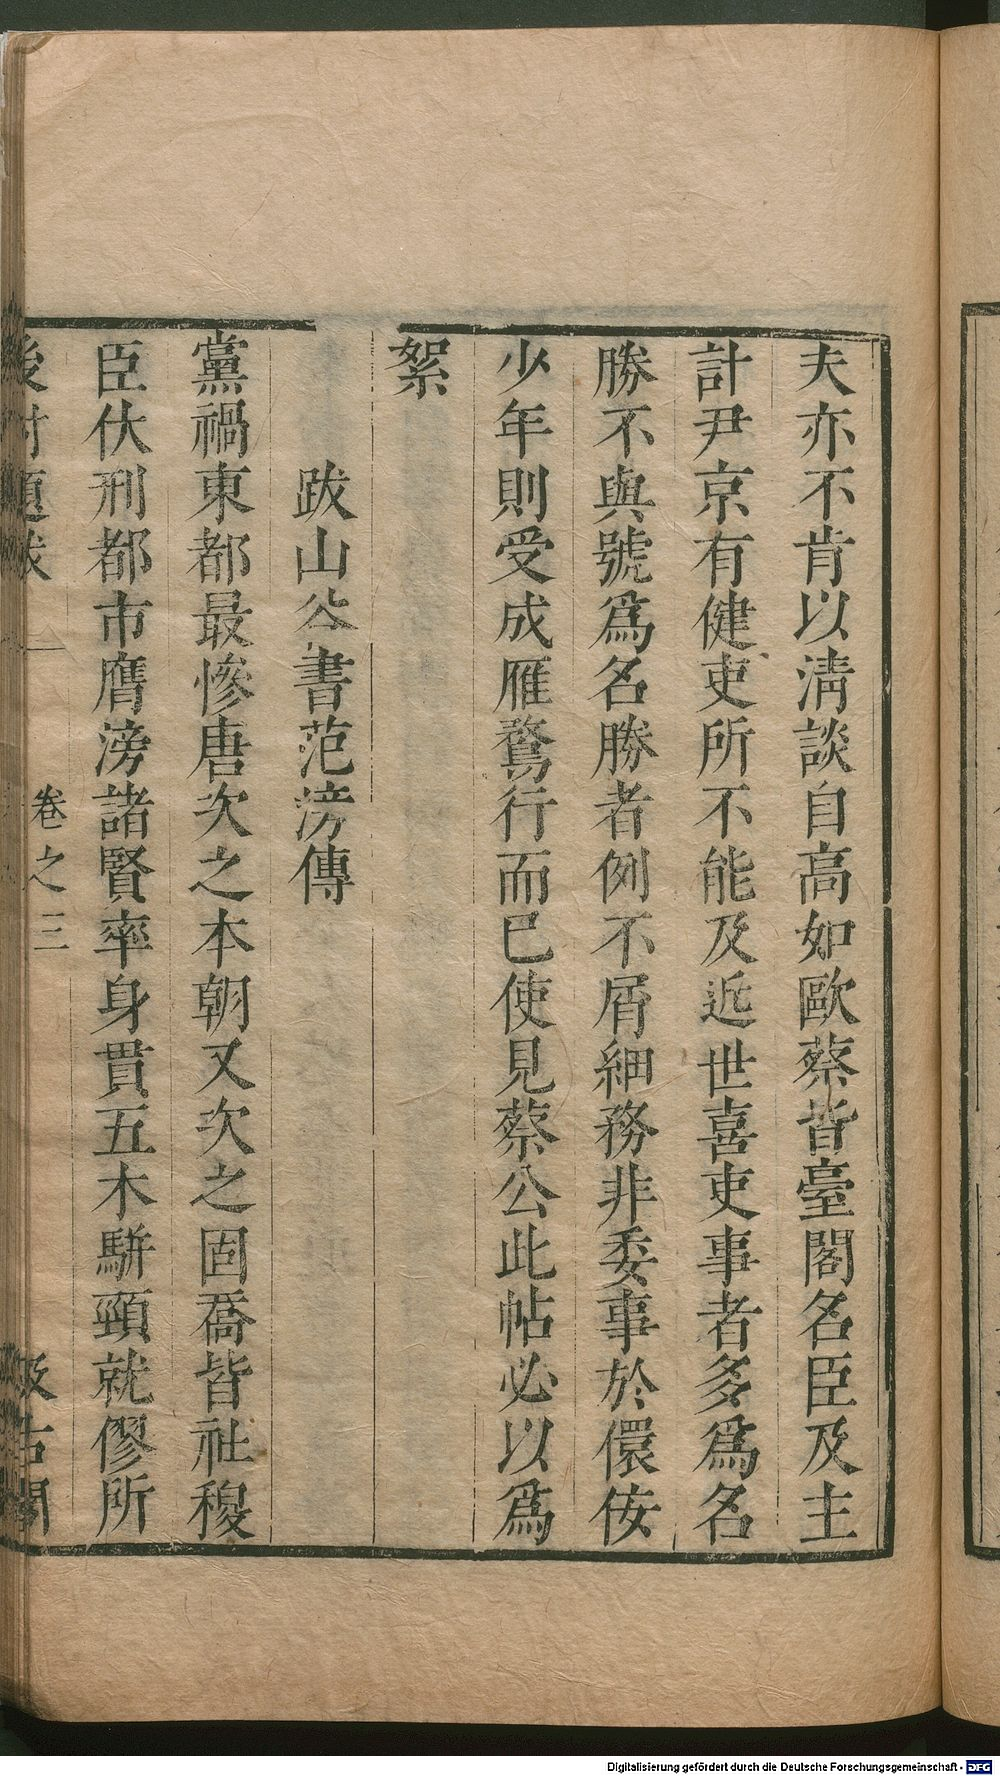 夫亦不肯以清談自高如歐蔡皆臺閣名臣及主
計尹京有健吏所不能及近世喜吏事者多爲名
勝不與號爲名勝者例不屑細務非委事於儇侫
少年則受成雁鶩行而巳使見蔡公此帖必以爲
絮
跋山谷書范滂傳
黨禍東都最慘唐次之本朝又次之固喬皆社稷
臣伏刑都市膺滂諸賢率身貫五木駢頸就僇所
後村題跋
卷之三
汲古閣
Digitalisierung gefördert durch die Deutsche Forschungsgemeinschaft - DFG